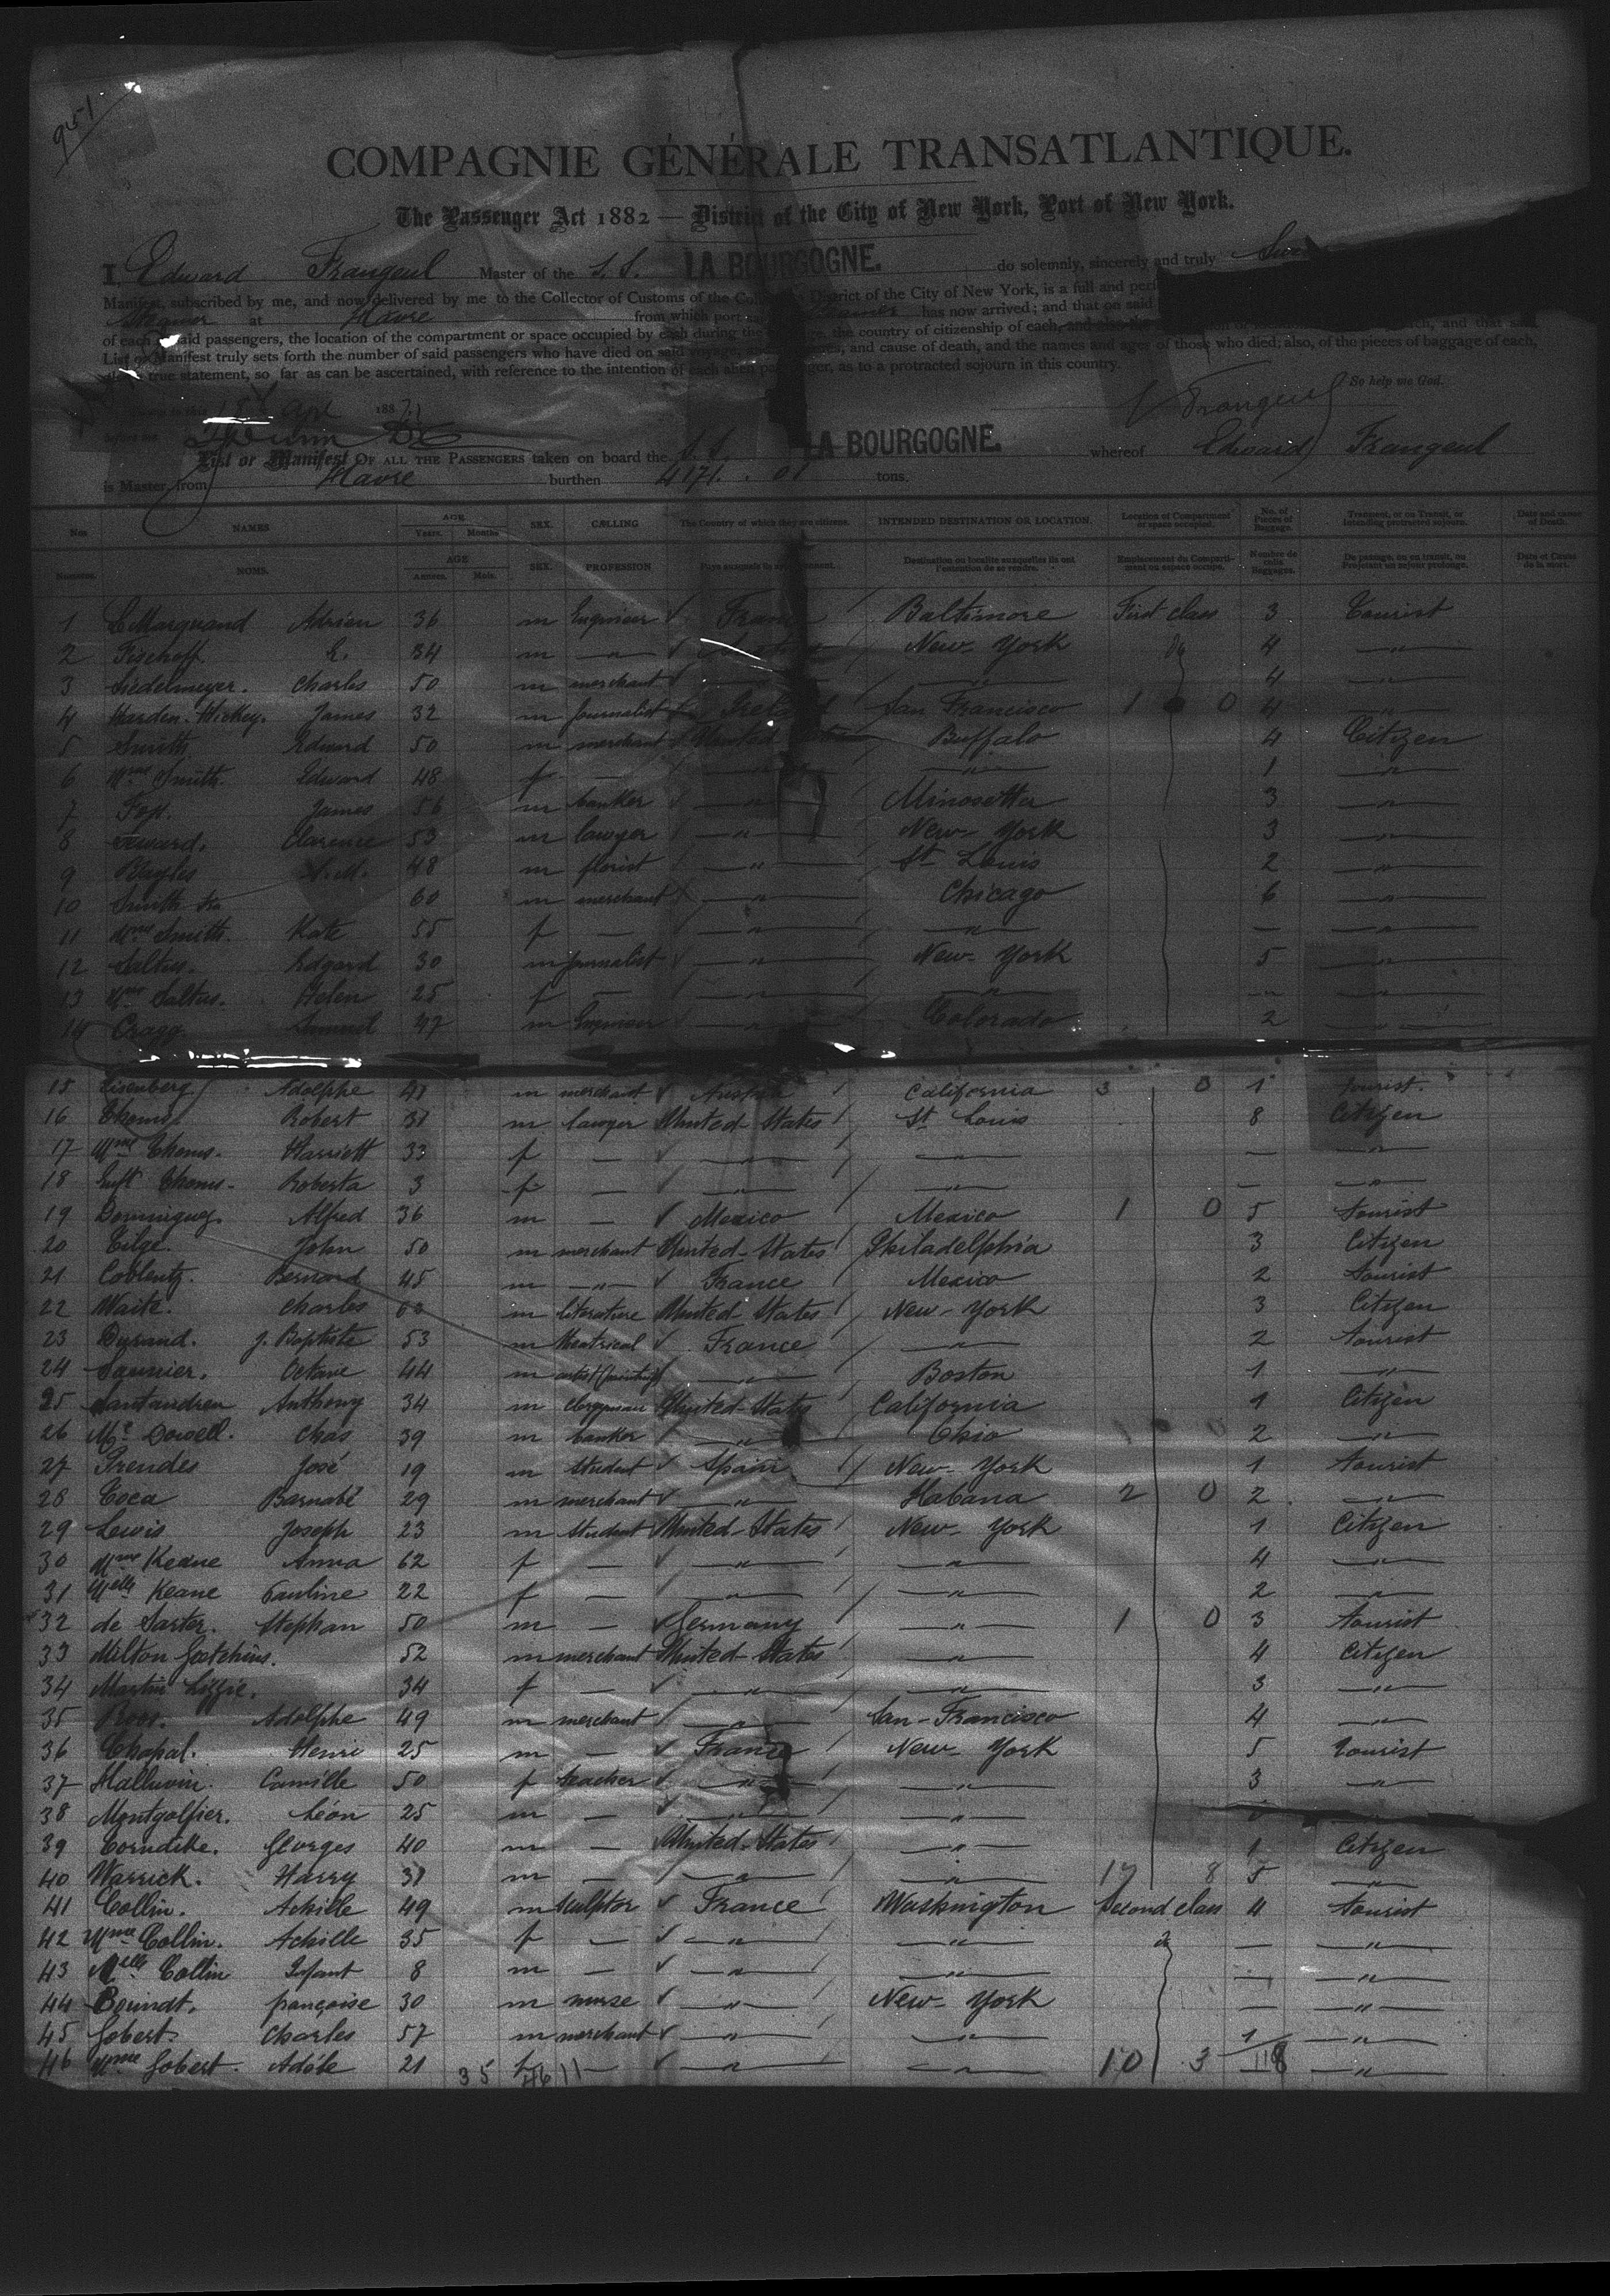 951
COMPAGNIE GÉNÉRALE TRANSATLANTIQUE.
The Passenger Act 1882 — District of the City of New York, Port of New York.
I, Edward Frangeul Master of the S.S. LA BOURGOGNE. do solemnly, sincerely and truly
Manifest, subscribed by me, and now delivered by me to the Collector of Customs of the District of the City of New York, is a full and
at Havre from which port has now arrived; and that on said
of each said passengers, the location of the compartment or space occupied by each during the the country of citizenship of each, and that said
List or Manifest truly sets forth the number of said passengers who have died on said voyage, and cause of death, and the names and ages of those who died; also, of the pieces of baggage of each,
true statement, so far as can be ascertained, with reference to the intention of each alien as to a protracted sojourn in this country.
So help me God.
188
Frangeul
List or Manifest OF ALL THE PASSENGERS taken on board the S.S. LA BOURGOGNE. whereof Edward Frangeul
is Master, from Havre burthen 4171. 01 tons.
Nos NAMES AGE Years. Months SEX. CALLING The Country of which they are citizens. INTENDED DESTINATION OR LOCATION. Location of Compartment or space occupied. No. of Pieces of Baggage. Transient, or on Transit, or intending protracted sojourn. Date and cause of Death.
Numéros. NOMS. AGE Années. Mois. SEX. PROFESSION Destination ou localité auxquelles ils ont l'intention de se rendre. Emplacement du Compartiment ou espace occupé. Nombre de colis Baggages. De passage, ou en transit, ou Projetant un séjour prolongé. Date et Cause de la mort.
1 LeMarquand Adrien 36 m Engineer France Baltimore First class 3 Tourist
2 Fischoff E. 34 m — " — New-York do 4 — " —
3 Siedelmeyer. Charles 50 m merchant — " — 4 — " —
4 Harden-Hickey. James 32 m journalist San Francisco 1 0 4 — " —
5 Smith Edward 50 m merchant United Buffalo 4 Citizen
6 Mme Smith. Edward 48 f — — " — — " — 1 — " —
7 James 56 m banker — " — Minosetta 3 — " —
8 Seward. Clarence 53 m lawyer — " — New-York 3 — " —
9 48 m florist — " — St Louis 2 — " —
10 Smith 60 m merchant — " — Chicago 6 — " —
11 Mme Smith. Kate 55 f — — " — — " — — — " —
12 Saltus. Edgard 30 m journalist — " — New-York 5 — " —
13 Mme Saltus. Helen 25 f — — " — — " — — " — — " —
14 Cragg Samuel 47 m Engineer — " — Colorado 2 — " —
15 Eisenberg Adolphe 47 m merchant Austria California 3 0 1 tourist.
16 Robert 37 m lawyer United-States St Louis 8 Citizen
17 Mme Harriett 33 f — — " — — " — — — " —
18 Roberta 3 f — — " — — " — — — " —
19 Dominguez. Alfred 36 m — Mexico Mexico 1 0 5 tourist
20 Tilge. John 50 m merchant United-States Philadelphia 3 Citizen
21 Coblentz. Bernard 45 m — " — France Mexico 2 tourist
22 Waite. Charles m literature United-States New-York 3 Citizen
23 Durand. J. Baptiste 53 m theatrical France — " — 2 tourist
24 Saunier. Octave 44 m artist — " — Boston 1 — " —
25 Santandreu Anthony 34 m clergyman United-States California 1 Citizen
26 Mc Dowell. Chas 39 m banker — " — Ohio 2 — " —
27 Prendes José 19 m student Spain New-York 1 tourist
28 Coca Barnabé 29 m merchant — " — Habana 2 0 2 — " —
29 Lewis Joseph 23 m student United-States New-York 1 Citizen
30 Mme Keane Anna 62 f — — " — — " — 4 — " —
31 Melle Keane Pauline 22 f — — " — — " — 2 — " —
32 de Sarter. Stephan 50 m — Germany — " — 1 0 3 tourist
33 Milton 52 m merchant United-States — " — 4 Citizen
34 Martin Lizzie. 34 f — — " — — " — 3 — " —
35 Roos. Adolphe 49 m merchant — " — San-Francisco 4 — " —
36 Chapal. Henri 25 m — France New-York 5 tourist
37 Malluvin. Camille 50 f teacher — " — — " — 3 — " —
38 Montgolfier. Léon 25 m — — " — — " —
39 Corndike. Georges 40 m — United-States — " — 1 Citizen
40 Warrick. Harry 37 m — — " — — " — 17 8 5 — " —
41 Collin. Achille 49 m sculptor France Washington Second class 4 tourist
42 Mme Collin. Achille 35 f — — " — — " — do — — " —
43 Melle Collin Infant 8 m — — " — — " — — — " —
44 Boundt. françoise 30 m nurse — " — New-York — — " —
45 Gobert. Charles 57 m merchant — " — — " — 1 — " —
46 Mme Gobert. Adéle 21 f — — " — — " — 10 3 118 — " —
35 46 11